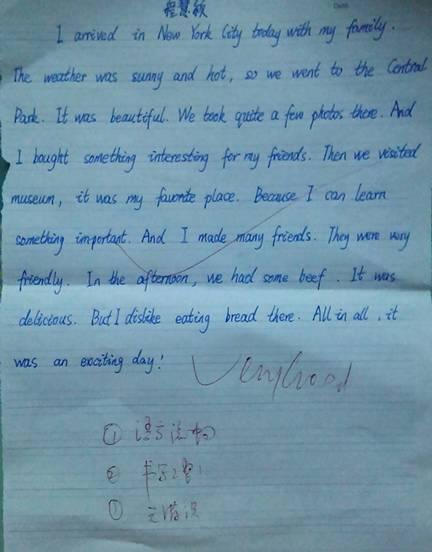 I arrived in New York City today with my family.
The weather was sunny and hot, so we went to the Central
Park. It was beautiful. We took quite a few photos there. And
I bought something interesting for my friends. Then we visited
museum, it was my favorite place. Because I can learn
something important. And I made many friends. They were very
friendly. In the afternoon, we had some beef. It was
delicious. But I dislike eating bread there. All in all, it
was an exciting day!
Very Good
① 语言流畅
②